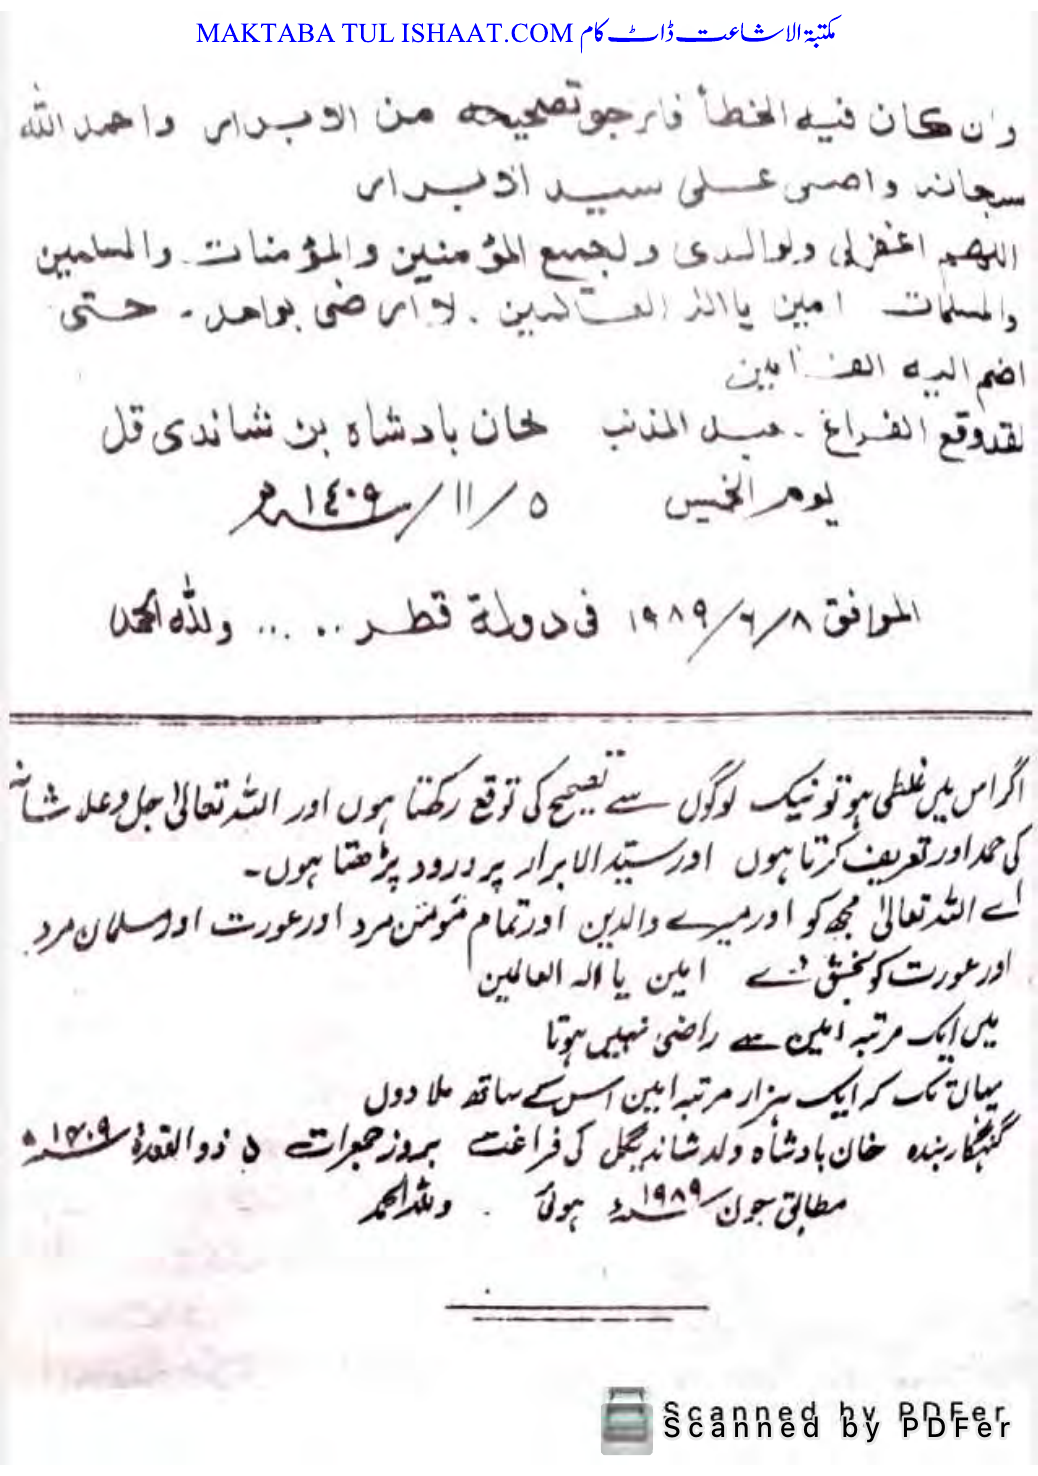 MAKTABA TUL ISHAAT.COM مکتبۃ الاشاعت ڈاٹ کام
وان كان فيه الخطأ فارجو تصحيحه من الابرار واحمد الله
سبحانه واصلى على سيد الابرار
اللهم اغفرلى ولوالدى ولجميع المؤمنين والمؤمنات والمسلمين
والمسلمات امين يا اله العالمين . لا ارضى بواحد . حتى
اضم اليه الف امين
لقد وقع الفراغ . عبد المذنب خان بادشاه بن شاندى قل
يوم الخميس ٥/١١/١٤٠٩ھ
الموافق ٨/٦/١٩٨٩ فى دولة قطر .. ... ولله الحمد
اگر اس میں غلطی ہو تو نیک لوگوں سے تصحیح کی توقع رکھتا ہوں اور اللہ تعالیٰ جل وعلا شانہ
کی حمد اور تعریف کرتا ہوں اور سید الابرار پر درود پڑھتا ہوں۔
اے اللہ تعالیٰ مجھ کو اور میرے والدین اور تمام مؤمن مرد اور عورت اور مسلمان مرد
اور عورت کو بخش دے امین یا الہ العالمین
میں ایک مرتبہ امین سے راضی نہیں ہوتا
یہاں تک کہ ایک ہزار مرتبہ امین اس کے ساتھ ملا دوں
گنہگار بندہ خان بادشاہ ولد شاندیگل کی فراغت بروز جمعرات ۵ ذوالقعدۃ ۱۴۰۹ھ
مطابق جون ۱۹۸۹ء ہوئی . وللہ الحمد
Scanned by PDFer
Scanned by PDFer